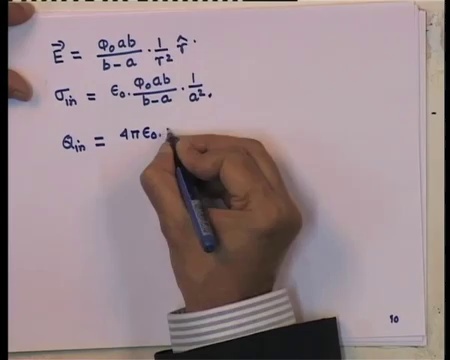 E⃗ = φ₀ab/b-a · 1/r² r̂.
σin = ε₀. φ₀ab/b-a · 1/a².
Qin = 4πε₀.
10